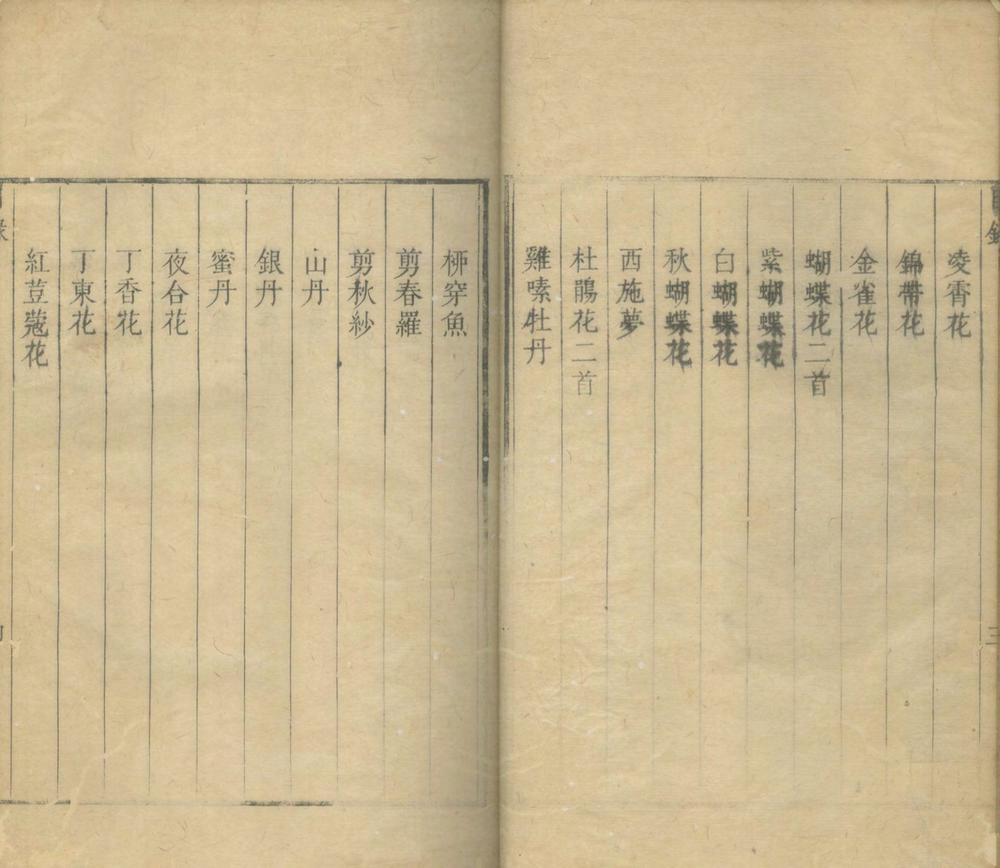 目錄
三
凌霄花
錦帶花
金雀花
蝴蝶花二首
紫蝴蝶花
白蝴蝶花
秋蝴蝶花
西施夢
杜鵑花二首
雞嗉牡丹
栁穿魚
剪春羅
剪秋紗
山丹
銀丹
蜜丹
夜合花
丁香花
丁東花
紅荳蔻花